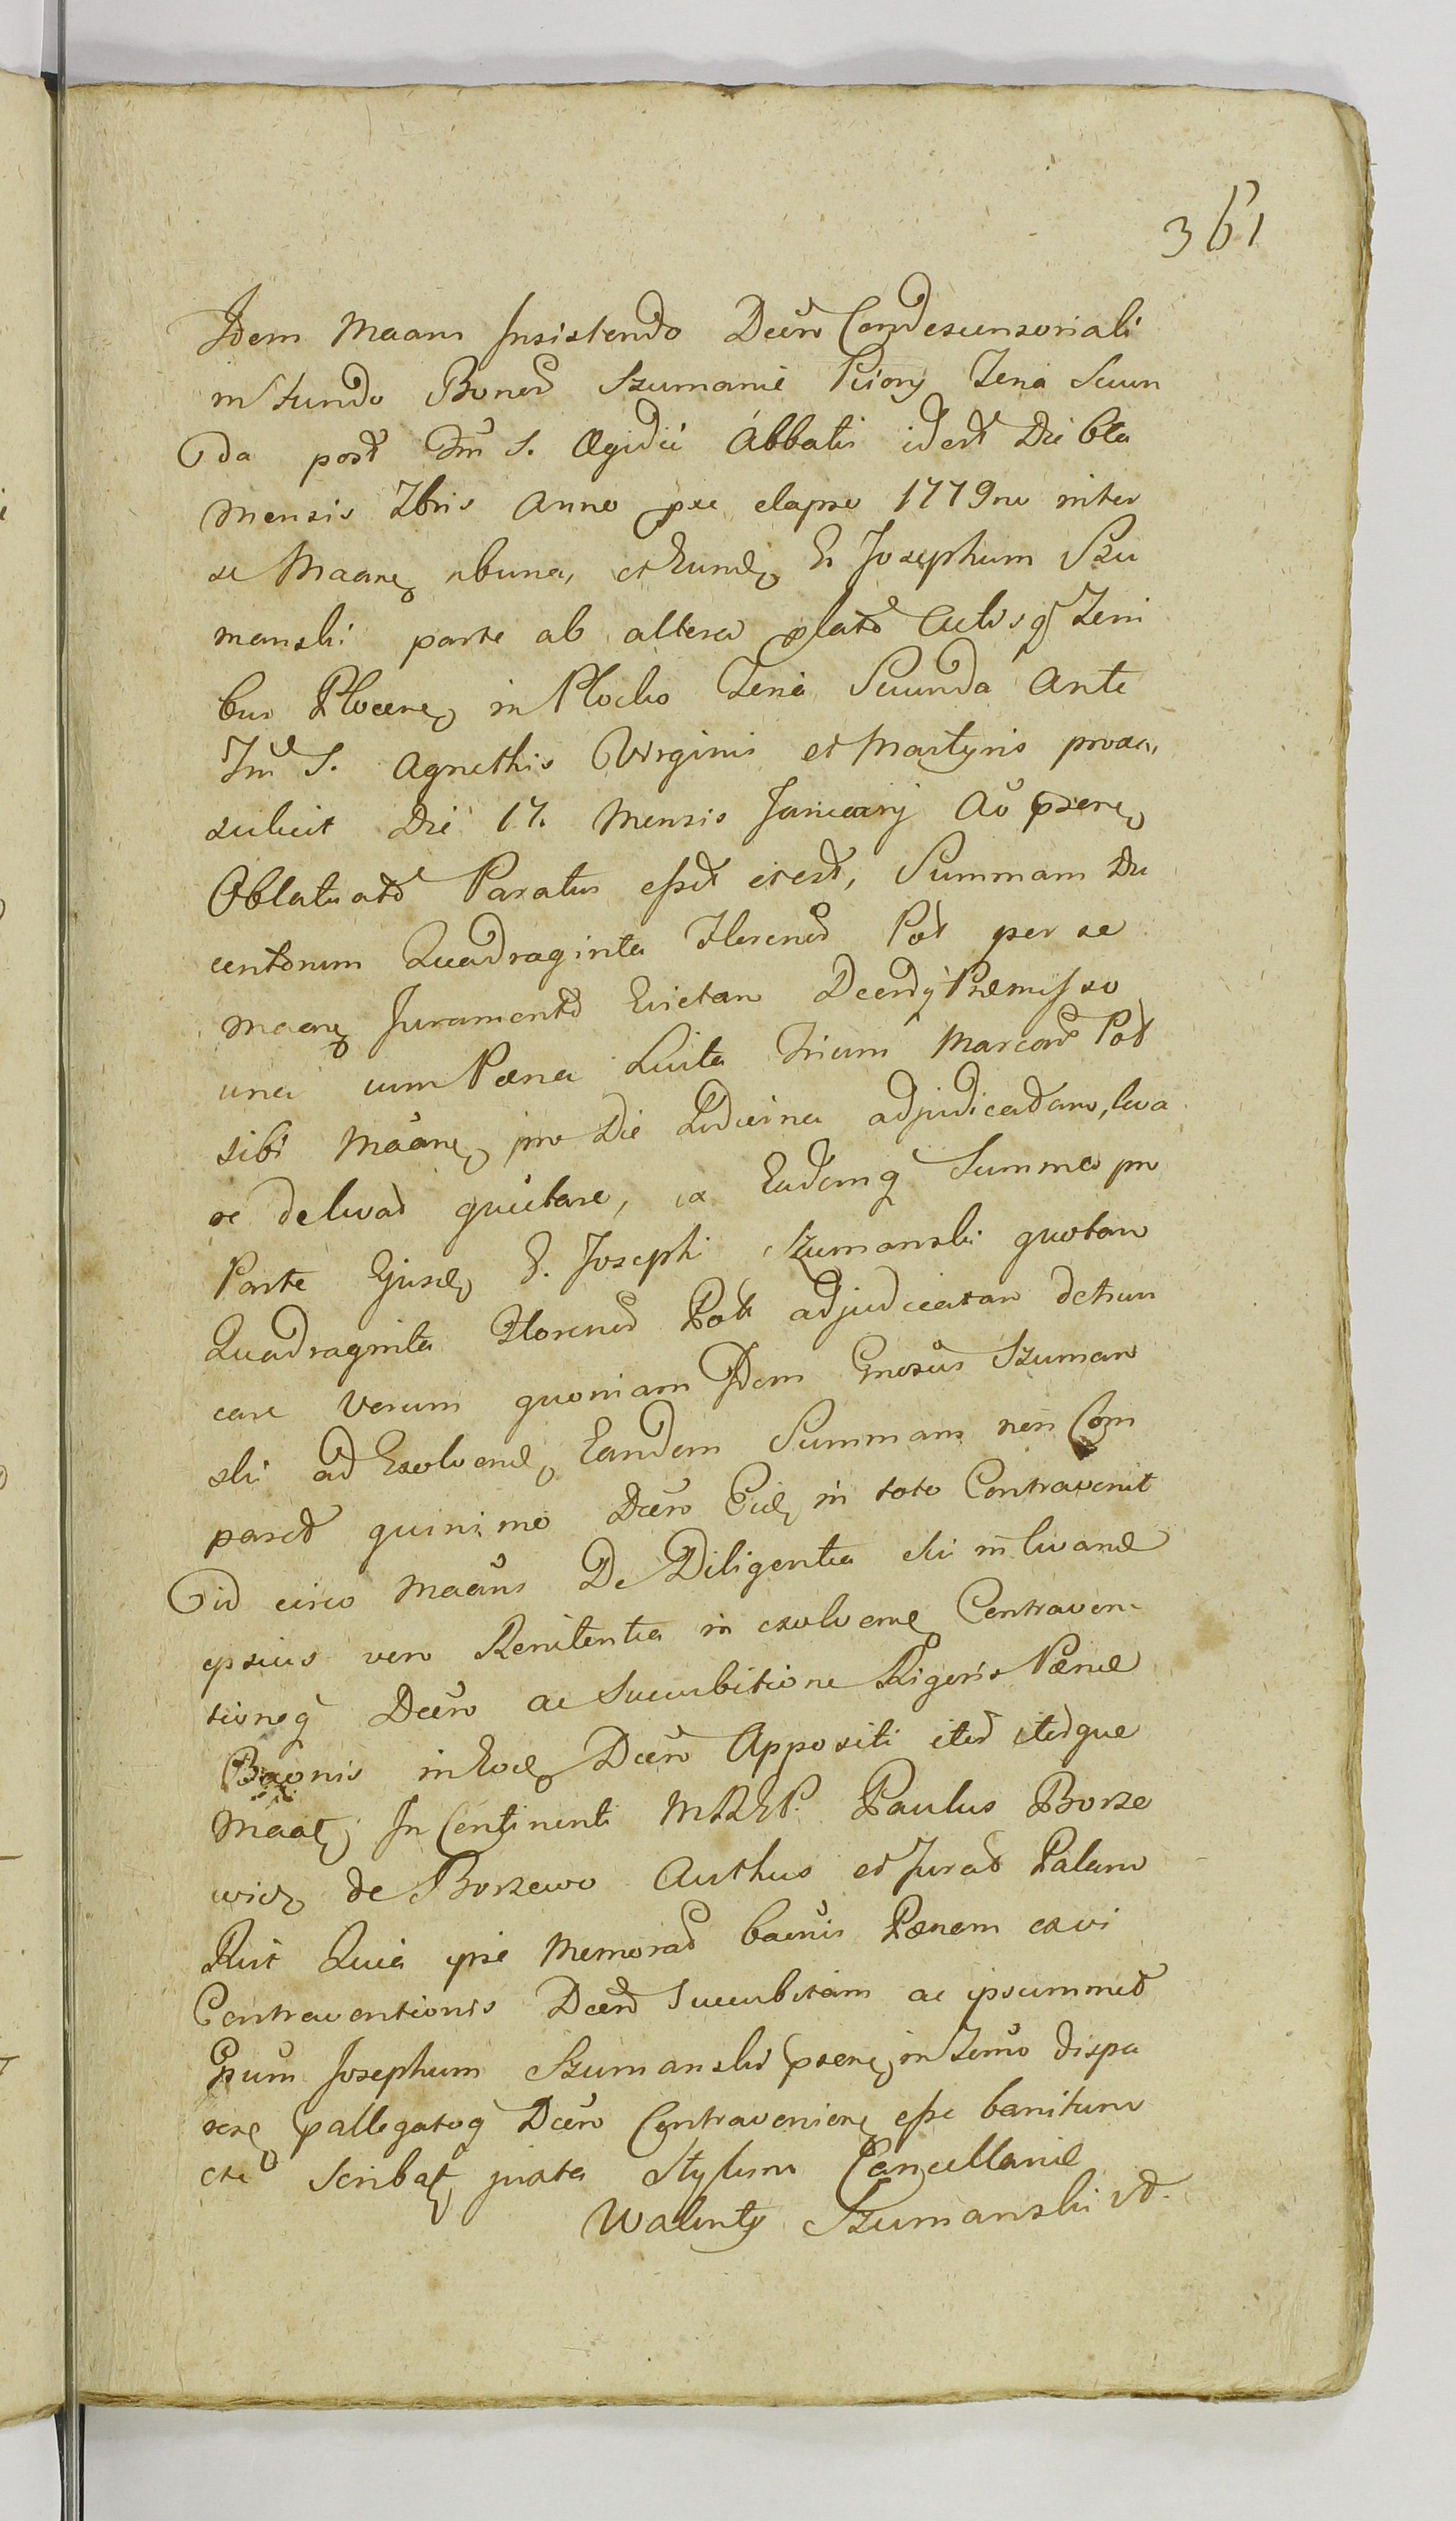 361
Idem Maans Insistendo Decro Condescensoriali
in Fundo Bonor Szumanie Piiory Feria Secun
da post Fm S. Ægidii Abbatis id est Die 6ta
Mensis 7bris Anno præ elapso 1779no inter
se Maane abuna, et Eund G Josephum Szu
manski parte ab altera plato Actisq Terri
bus Plocen in Plocko Feria Secunda Ante
Fm S. Agnethis Virginis et Martyris proxa,
scilicet Die 17. Mensis Januarij Ao præsen
Oblatuatd Paratus esset et est, Summam Du
centorum Quadraginta Florenor Pol per se
Maane Juramento Evictam Decroq Præmisso
una cum Pæna Luita Trium Marcar Pol
sibi Maane pro Die adjudicadam, leva
re de levad quietare, ex Eademq Summa pro
Parte Ejusd G. Josephi Szumanski quotam
Quadraginta Florenor Pol adjudicatam detrun
care Verum quoniam Idem Gnosus Szuman
ski ad Exolvend Eandem Summam non Com
paret quinimo Decro Eid in toto Contravenit
id circo Maans De Diligentia sui in levand
ipsius vero Renitentia in exolvend Contraven
tioneq Decro ac Succubitione Rigoris Pænæ
Baonis in Eod Decro Appositi iter iterque
Maat; In Continenti MRSP. Paulus Borze
wicz de Borzewo Authus et Jurat Palam
Rlit Quia ipse Memorad banis Pænam ex vi
Contraventionis Decro Succubitam ac ipsummet
Gsum Josephum Szumanski præsen in Termo dispa
ren pallegatoq Decro Contravenien esse banitum
 Scribat juxta Stylum Cancellariæ
Walenty Szumanski